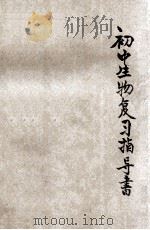 初中生物复习指导书
www.ixueshu.com